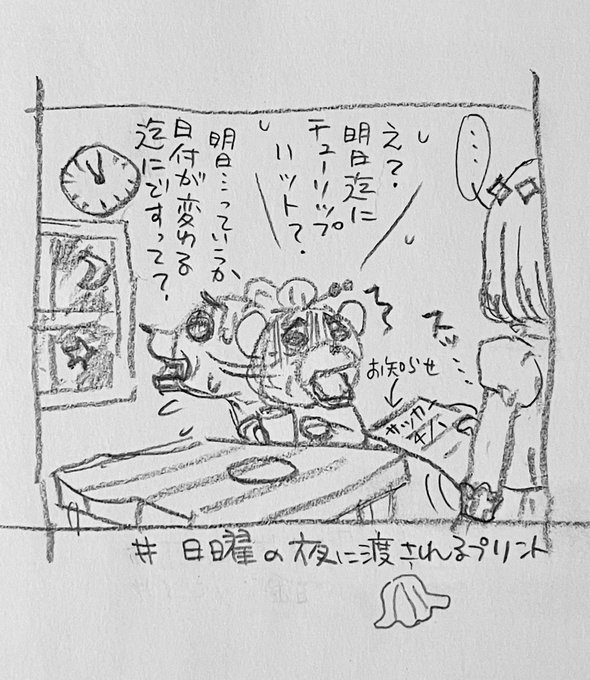 ……
え？
明日迄に
チューリップ
ハット？
明日…っていうか
日付が変わる
迄にですって？
スッ…
お知らせ
# 日曜の夜に渡されるプリント